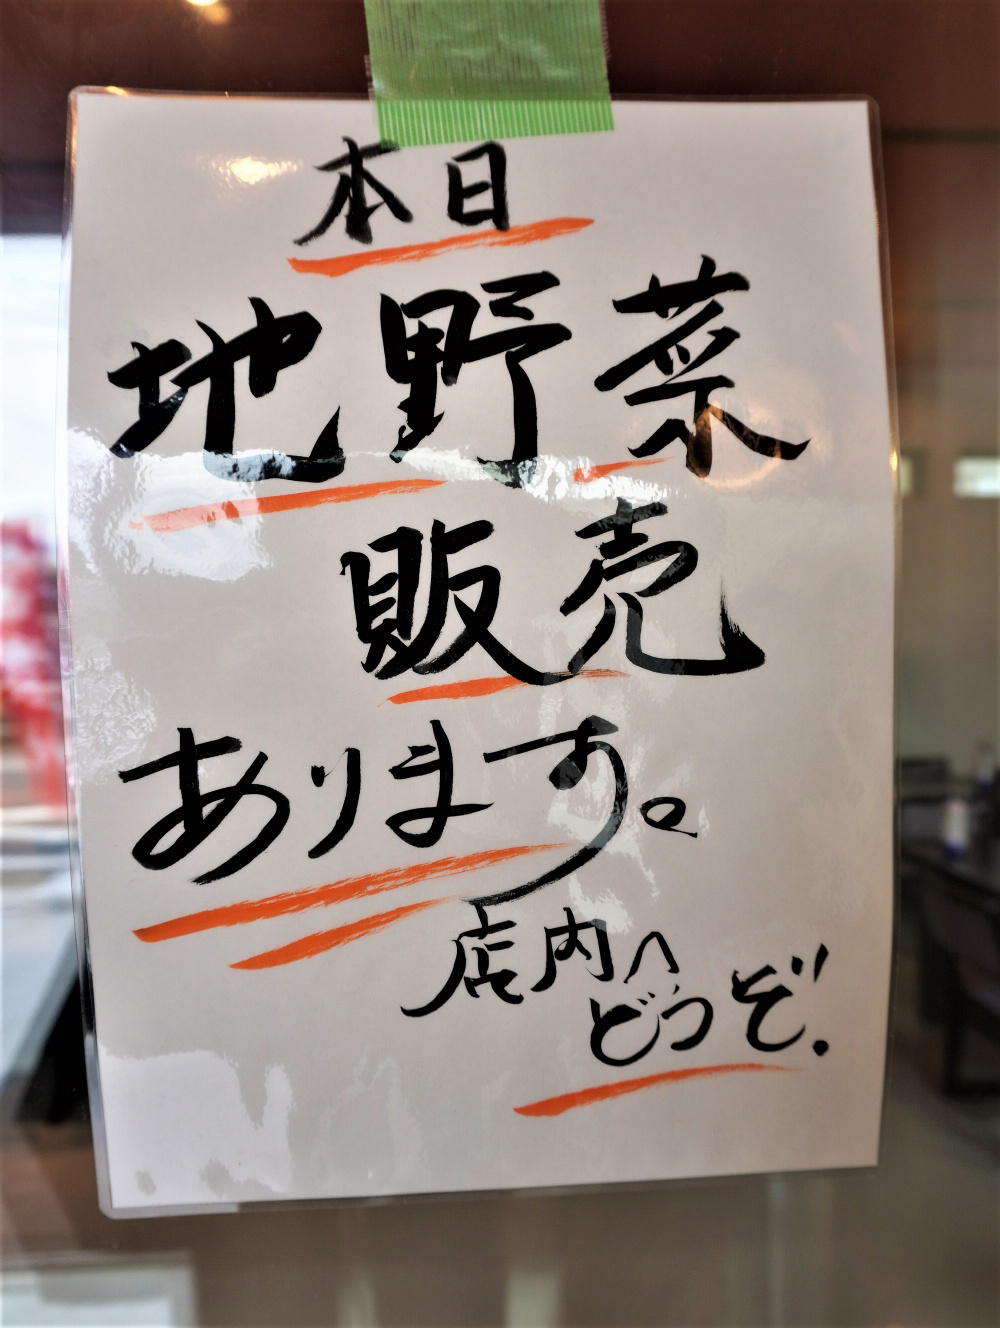 本日
地野菜
販売
あります。
店内へ
どうぞ.